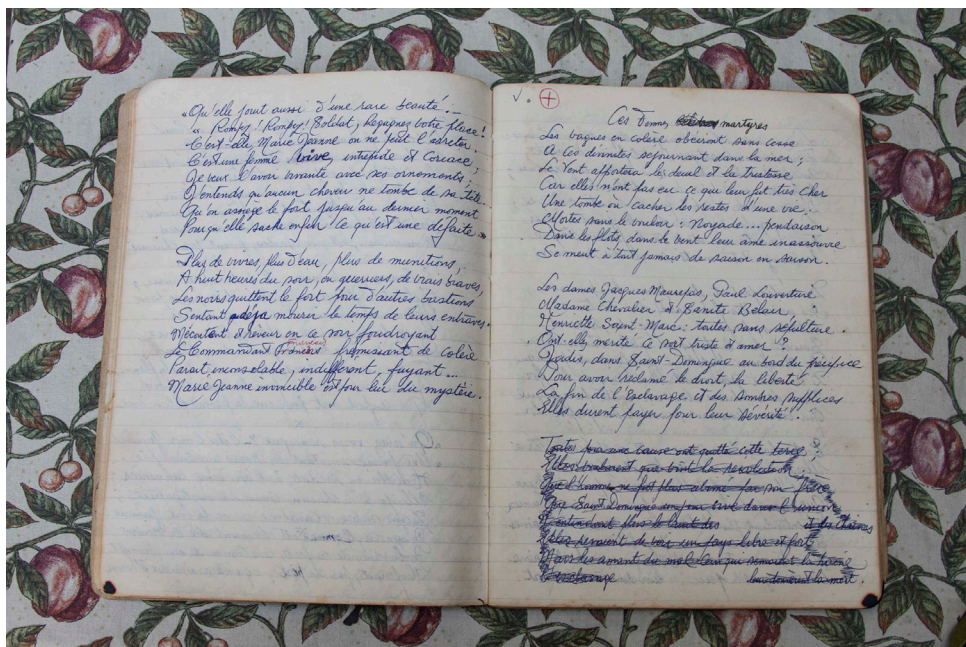 "Qu'elle jouit aussi d'une rare beauté...
" Rompez! Rompez! Soldat, Regagnez votre place!
C'est elle, Marie Jeanne on ne peut l'arrêter.
C'est une femme vive, intrépide et Coriace,
Je veux l'avoir vivante avec ses ornements!
J'entends qu'aucun cheveu ne tombe de sa tête
Qu'on assiège le fort jusqu'au dernier moment
Pour qu'elle sache enfin ce qu'est une défaite "
Plus de vivres, plus d'eau, plus de munitions,
A huit heures du soir, en guerriers, de vrais braves,
Les noirs quittent le fort pour d'autres bastions
Sentant déjà mourir le temps de leurs entraves.
Mécontent et rêveur en ce soir foudroyant
Le Commandant frémissant de colère
Parait inconsolable, indifférent, fuyant...
Marie Jeanne invincible est pour lui du mystère.
Ces Femmes martyres
Les vagues en colère obéiront sans cesse
A ces divinités séjournant dans la mer;
Le Vent apportera le deuil et la tristesse
Car elles n'ont pas eu ce qui leur fut très cher
Une tombe où cacher les restes d'une vie.
Mortes sans le vouloir: Noyade... pendaison
Dans les flots, dans le vent leur âme inassouvie
Se meut à tout jamais de saison en saison.
Les dames Jacques Maurepas, Paul Louverture
Madame Chevalier et Sanite Bélair,
Henriette Saint-Marc: toutes sans sépulture.
Ont-elles mérité ce sort triste et amer?
Jadis, dans Saint-Domingue au bord du précipice
Pour avoir réclamé le droit, la liberté
La fin de l'Esclavage et des sombres supplices
Elles durent payer pour leur sévérité.
Toutes pour une cause ont quitté cette terre
Elles voulaient que vint la révolution
Que l'homme ne fut plus abimé par son frère
Que Saint Domingue un jour
N'entendront plus le bruit des et des Chaines
Elles rêvaient de voir un pays libre et fort
Mais les amants du mal ceux qui semaient la haine
L'esclavage leur donnèrent la mort.